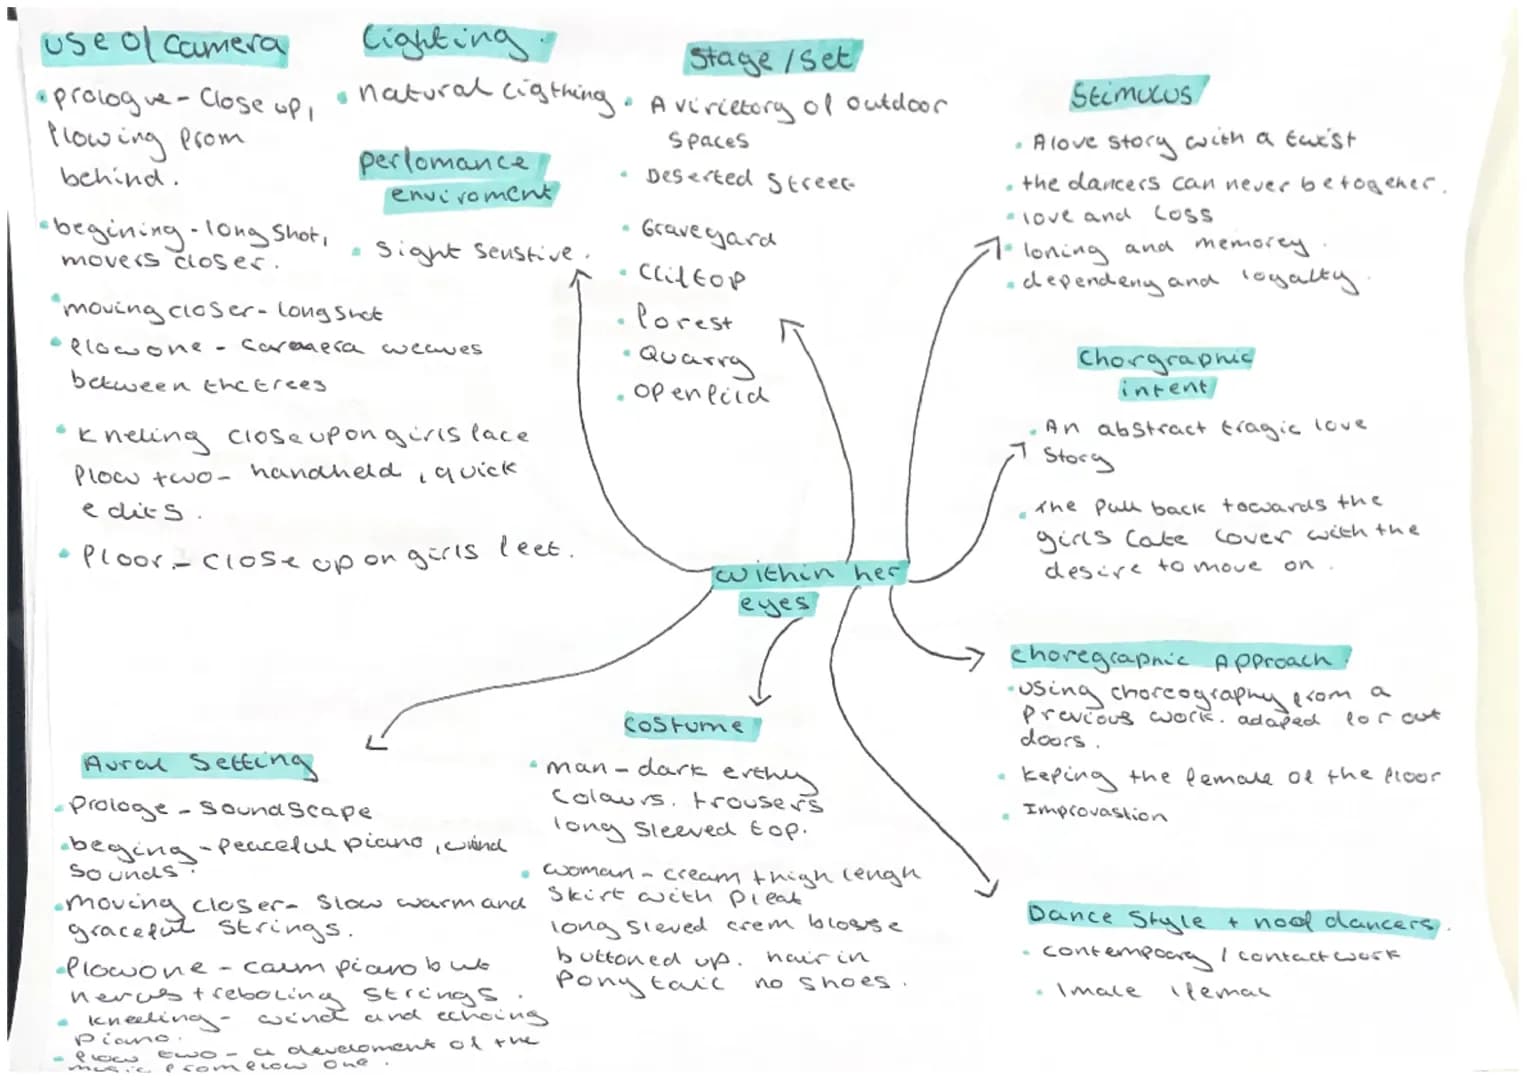 use of camera
• prologue - Close up,
flowing from
behind.
• begining - long shot,
movers closer.
• moving closer - long shot
• flow one - caramera weaves
between the trees
• kneling close up on girls face
flow two - handheld, quick
edits.
• floor - close up on girls feet.
Lighting.
• natural ligthing.
perfomance
enviroment
• Sight senstive.
Stage / set
• A virietory of outdoor
spaces
• Deserted Street
• Graveyard
• Cliftop
• forest
• Quarry
• open feild
Stimulus
• A love story with a twist
• the dancers can never be togeher.
• love and loss
• loning and memorey.
• dependeny and loyalty.
Chorgraphic
intent
• An abstract tragic love
Story
• The pull back towards the
girls late lover with the
desire to move on.
within her
eyes
choregraphic Approach.
• using choreography from a
previous work. adaped for out
doors.
• keping the female of the floor
• Improvastion
Dance Style + no of dancers.
• contempoary / contact work
• 1 male 1 femal
costume
• man - dark erthy
colours. trousers
long sleeved top.
• woman - cream thigh lengh
skirt with pleat
long sleved crem blouse
buttoned up. hair in
ponytail no shoes.
Aural Setting
• Prologe - soundscape
• beging - peaceful piano, wind
sounds.
• moving closer - slow warm and
graceful strings.
• flow one - calm piano but
nervus treboling strings.
• kneeling - wind and echoing
piano.
• flow two - a develoment of the
music from flow one.